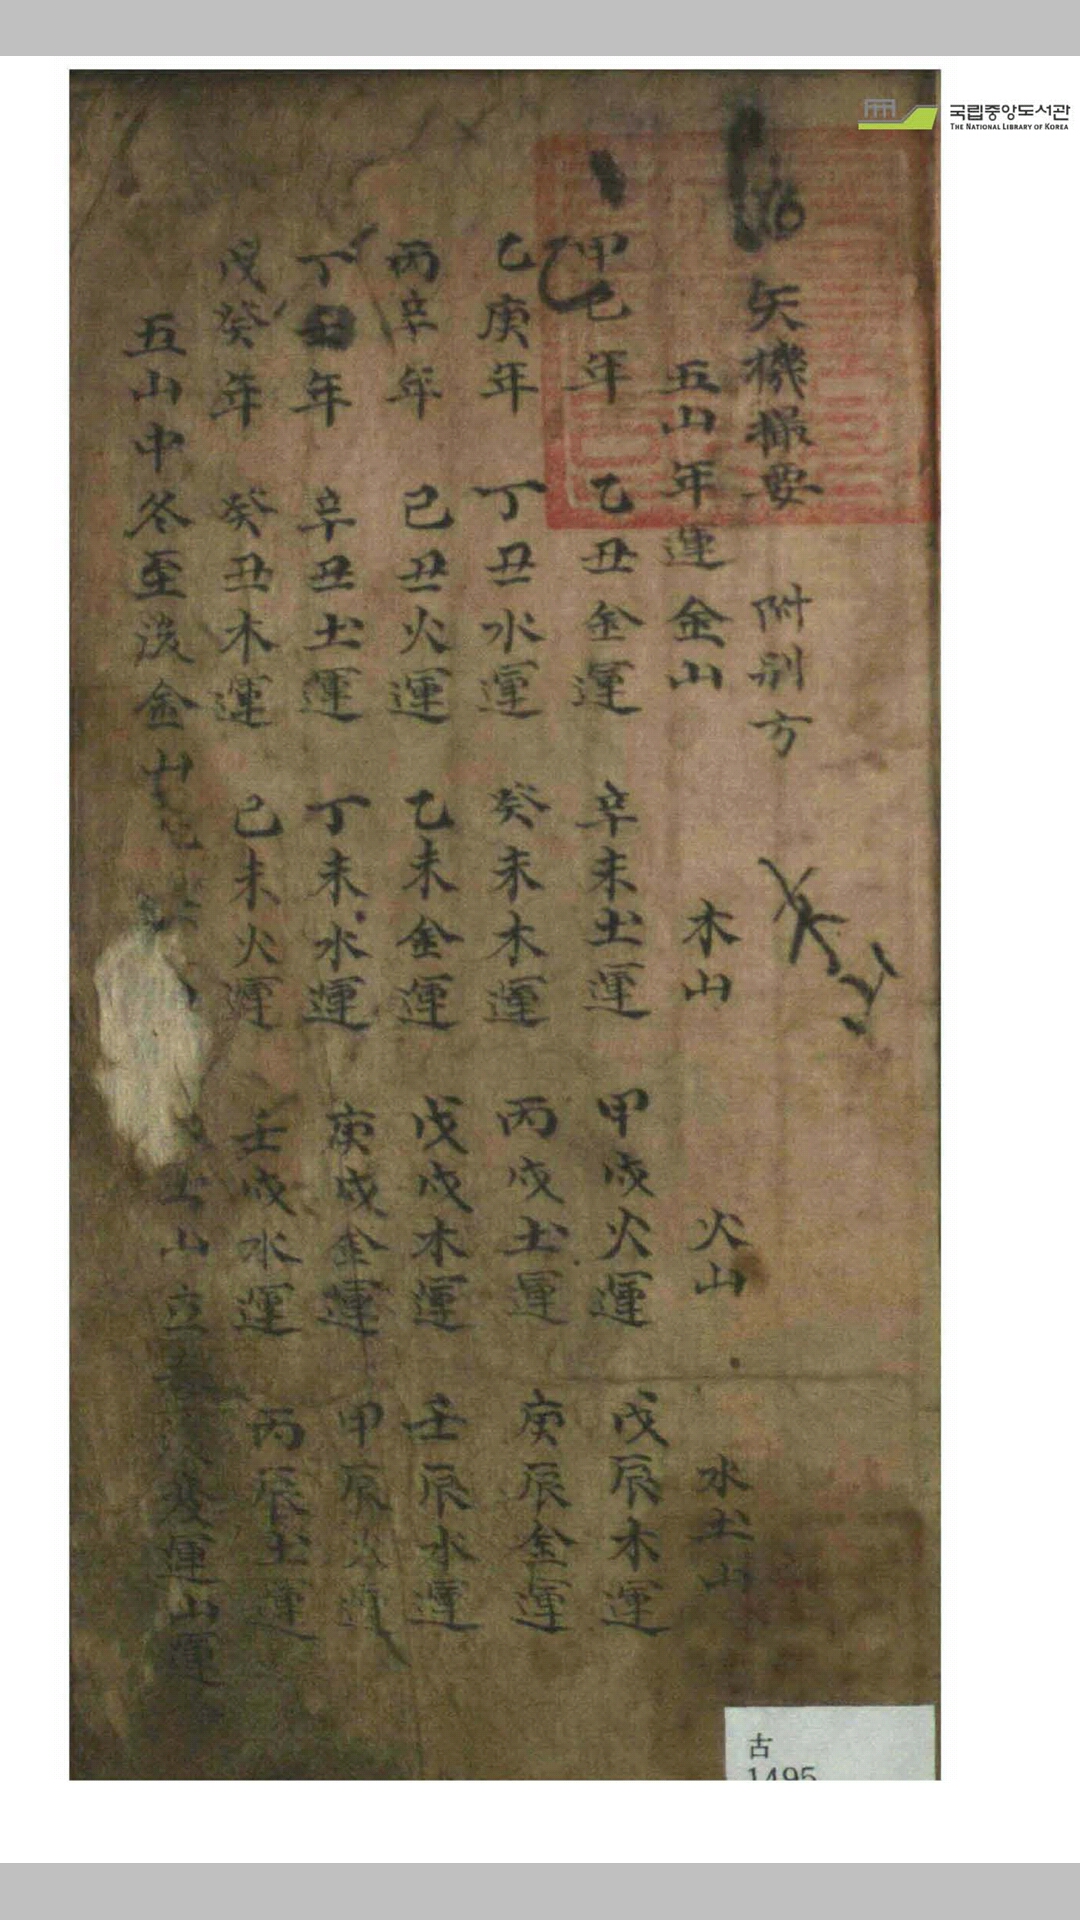 国립중앙도서관
THE NATIONAL LIBRARY OF KOREA
矢機撮要 附別方
五山年運 金山 木山 火山 水土山
甲己年 乙丑金運 辛未土運 甲戌火運 戊辰木運
乙庚年 丁丑水運 癸未木運 丙戌土運 庚辰金運
丙辛年 己丑火運 乙未金運 戊戌木運 壬辰水運
丁壬年 辛丑土運 丁未水運 庚戌金運 甲辰火運
戊癸年 癸丑木運 己未火運 壬戌水運 丙辰土運
五山中冬至後金山 土山立 變運山運
古
1495